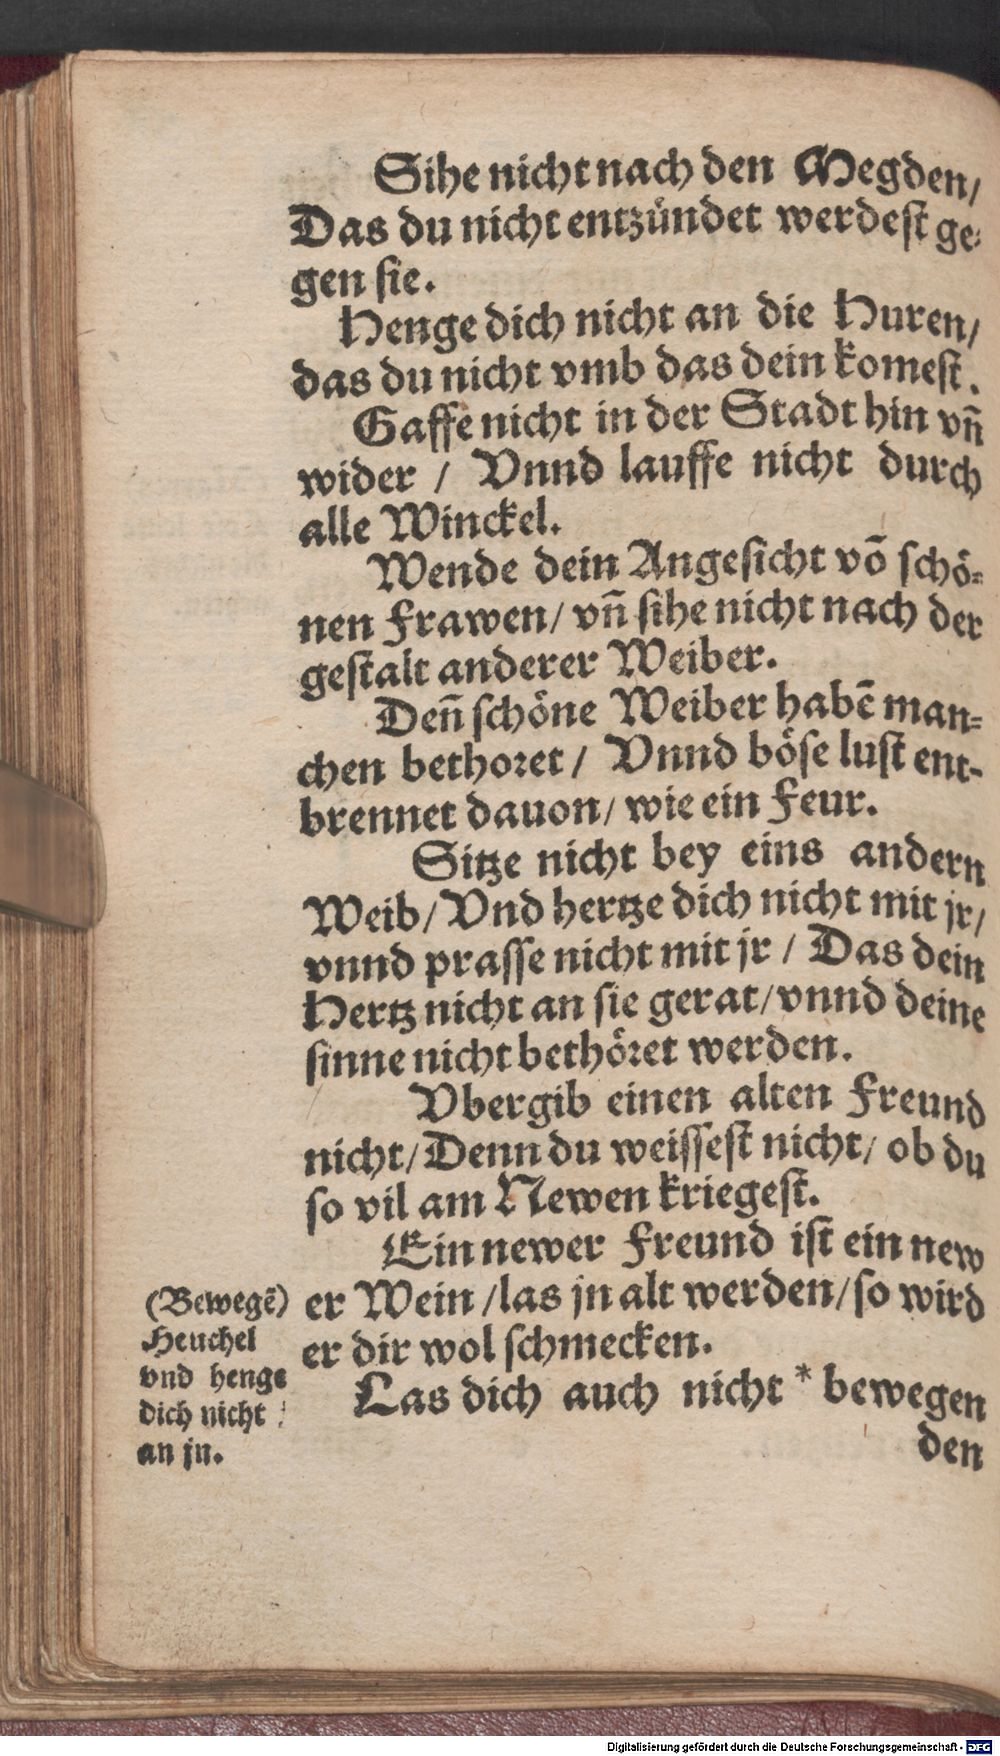 Sihe nicht nach den Megden/
Das du nicht entzündet werdest ge-
gen sie.
Henge dich nicht an die Huren/
das du nicht vmb das dein komest.
Gaffe nicht in der Stadt hin vn̄
wider / Vnnd lauffe nicht durch
alle Winckel.
Wende dein Angesicht vō schö-
nen Frawen/ vn̄ sihe nicht nach der
gestalt anderer Weiber.
Den̄ schöne Weiber habē man-
chen bethoret / Vnnd böse lust ent-
brennet dauon/ wie ein Feur.
Sitze nicht bey eins andern
Weib/ Vnd hertze dich nicht mit jr/
vnnd prasse nicht mit jr / Das dein
Hertz nicht an sie gerat/ vnnd deine
sinne nicht bethöret werden.
Vbergib einen alten Freund
nicht/ Denn du weissest nicht/ ob du
so vil am Newen kriegest.
Ein newer Freund ist ein new
er Wein /las jn alt werden/ so wird
er dir wol schmecken.
Las dich auch nicht * bewegen
den
(Bewegē)
Heuchel
vnd henge
dich nicht
an jn.
Digitalisierung gefördert durch die Deutsche Forschungsgemeinschaft - DFG